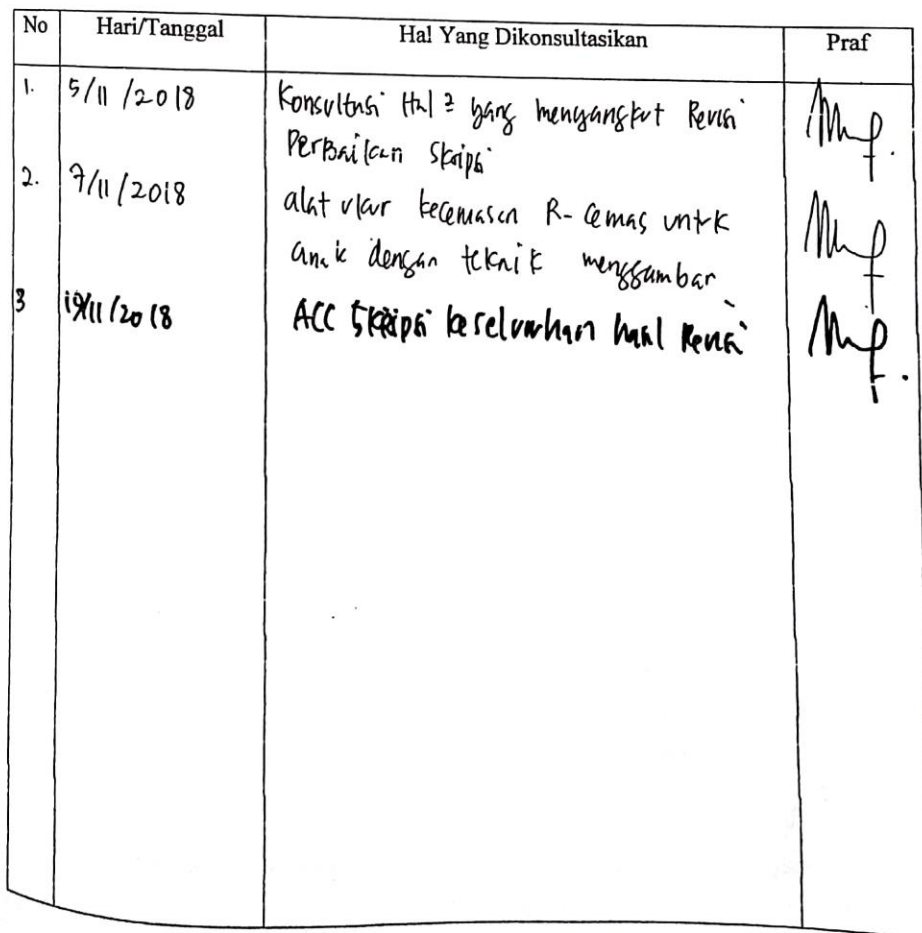 No Hari/Tanggal Hal Yang Dikonsultasikan Praf
1. 5/11/2018 Konsultasi Hal2 yang menyangkut Revisi
Perbaikan Skripsi
2. 7/11/2018 alat ukur kecemasan R-Cemas untuk
anak dengan teknik menggambar
3 19/11/2018 ACC Skripsi keseluruhan hasil Revisi